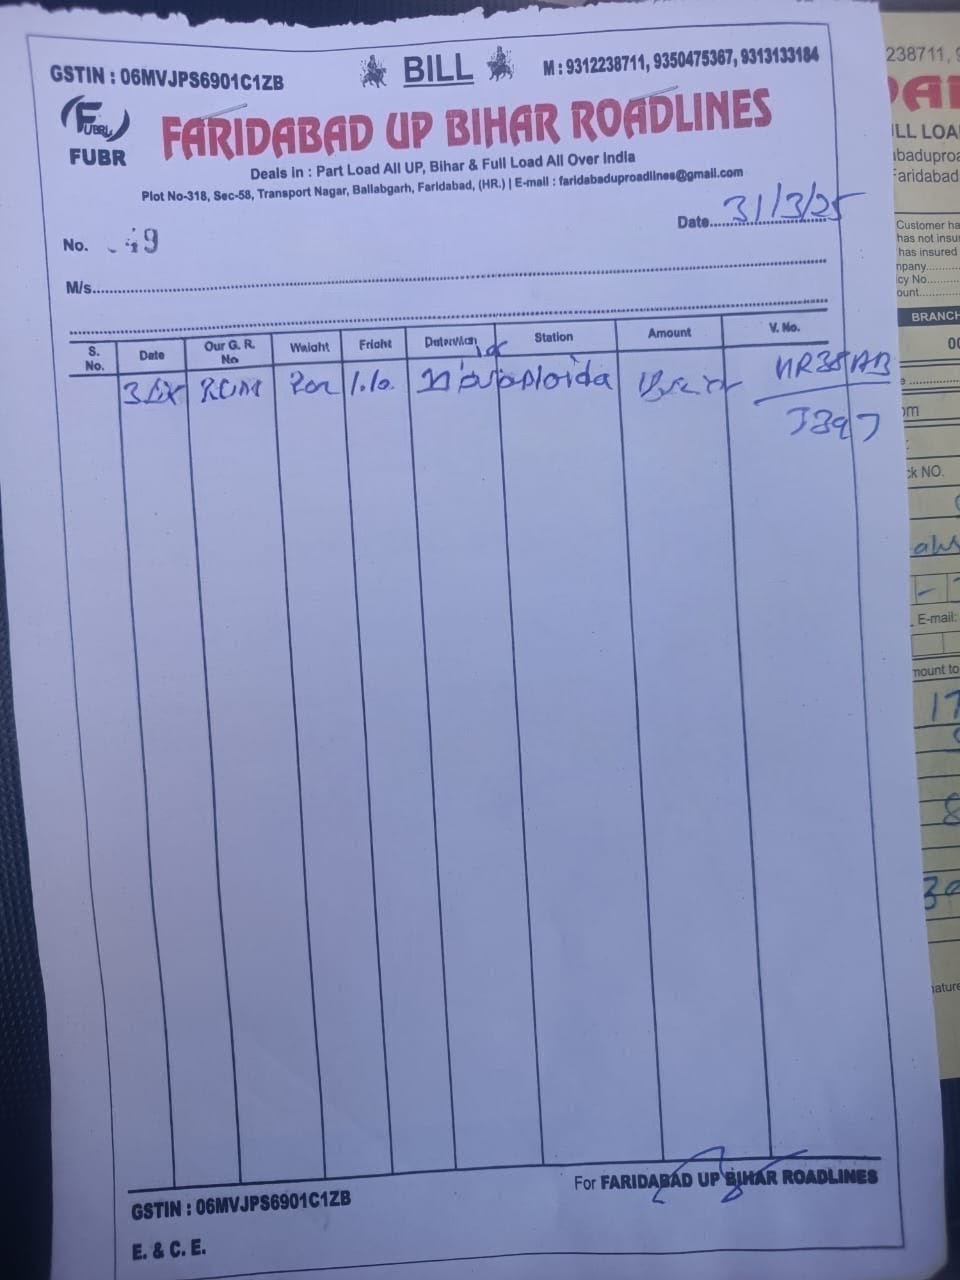 GSTIN : 06MVJPS6901C1ZB BILL M : 9312238711, 9350475367, 9313133184
FUBR
FARIDABAD UP BIHAR ROADLINES
FUBR
Deals in : Part Load All UP, Bihar & Full Load All Over India
Plot No-318, Sec-58, Transport Nagar, Ballabgarh, Faridabad, (HR.) | E-mail : faridabaduproadlines@gmail.com
Date 31/3/25
No. 49
M/s
S. No. Date Our G. R. No Waight Frieht Station Amount V. No.
HR38AB
GSTIN : 06MVJPS6901C1ZB
For FARIDABAD UP BIHAR ROADLINES
E. & C. E.
238711, 9
LL LOA
baduproa
Faridabad
Customer ha
has not insu
has insured
mpany
cy No
ount
BRANCH
00
om
ck NO.
E-mail:
mount to
17
8
30
nature